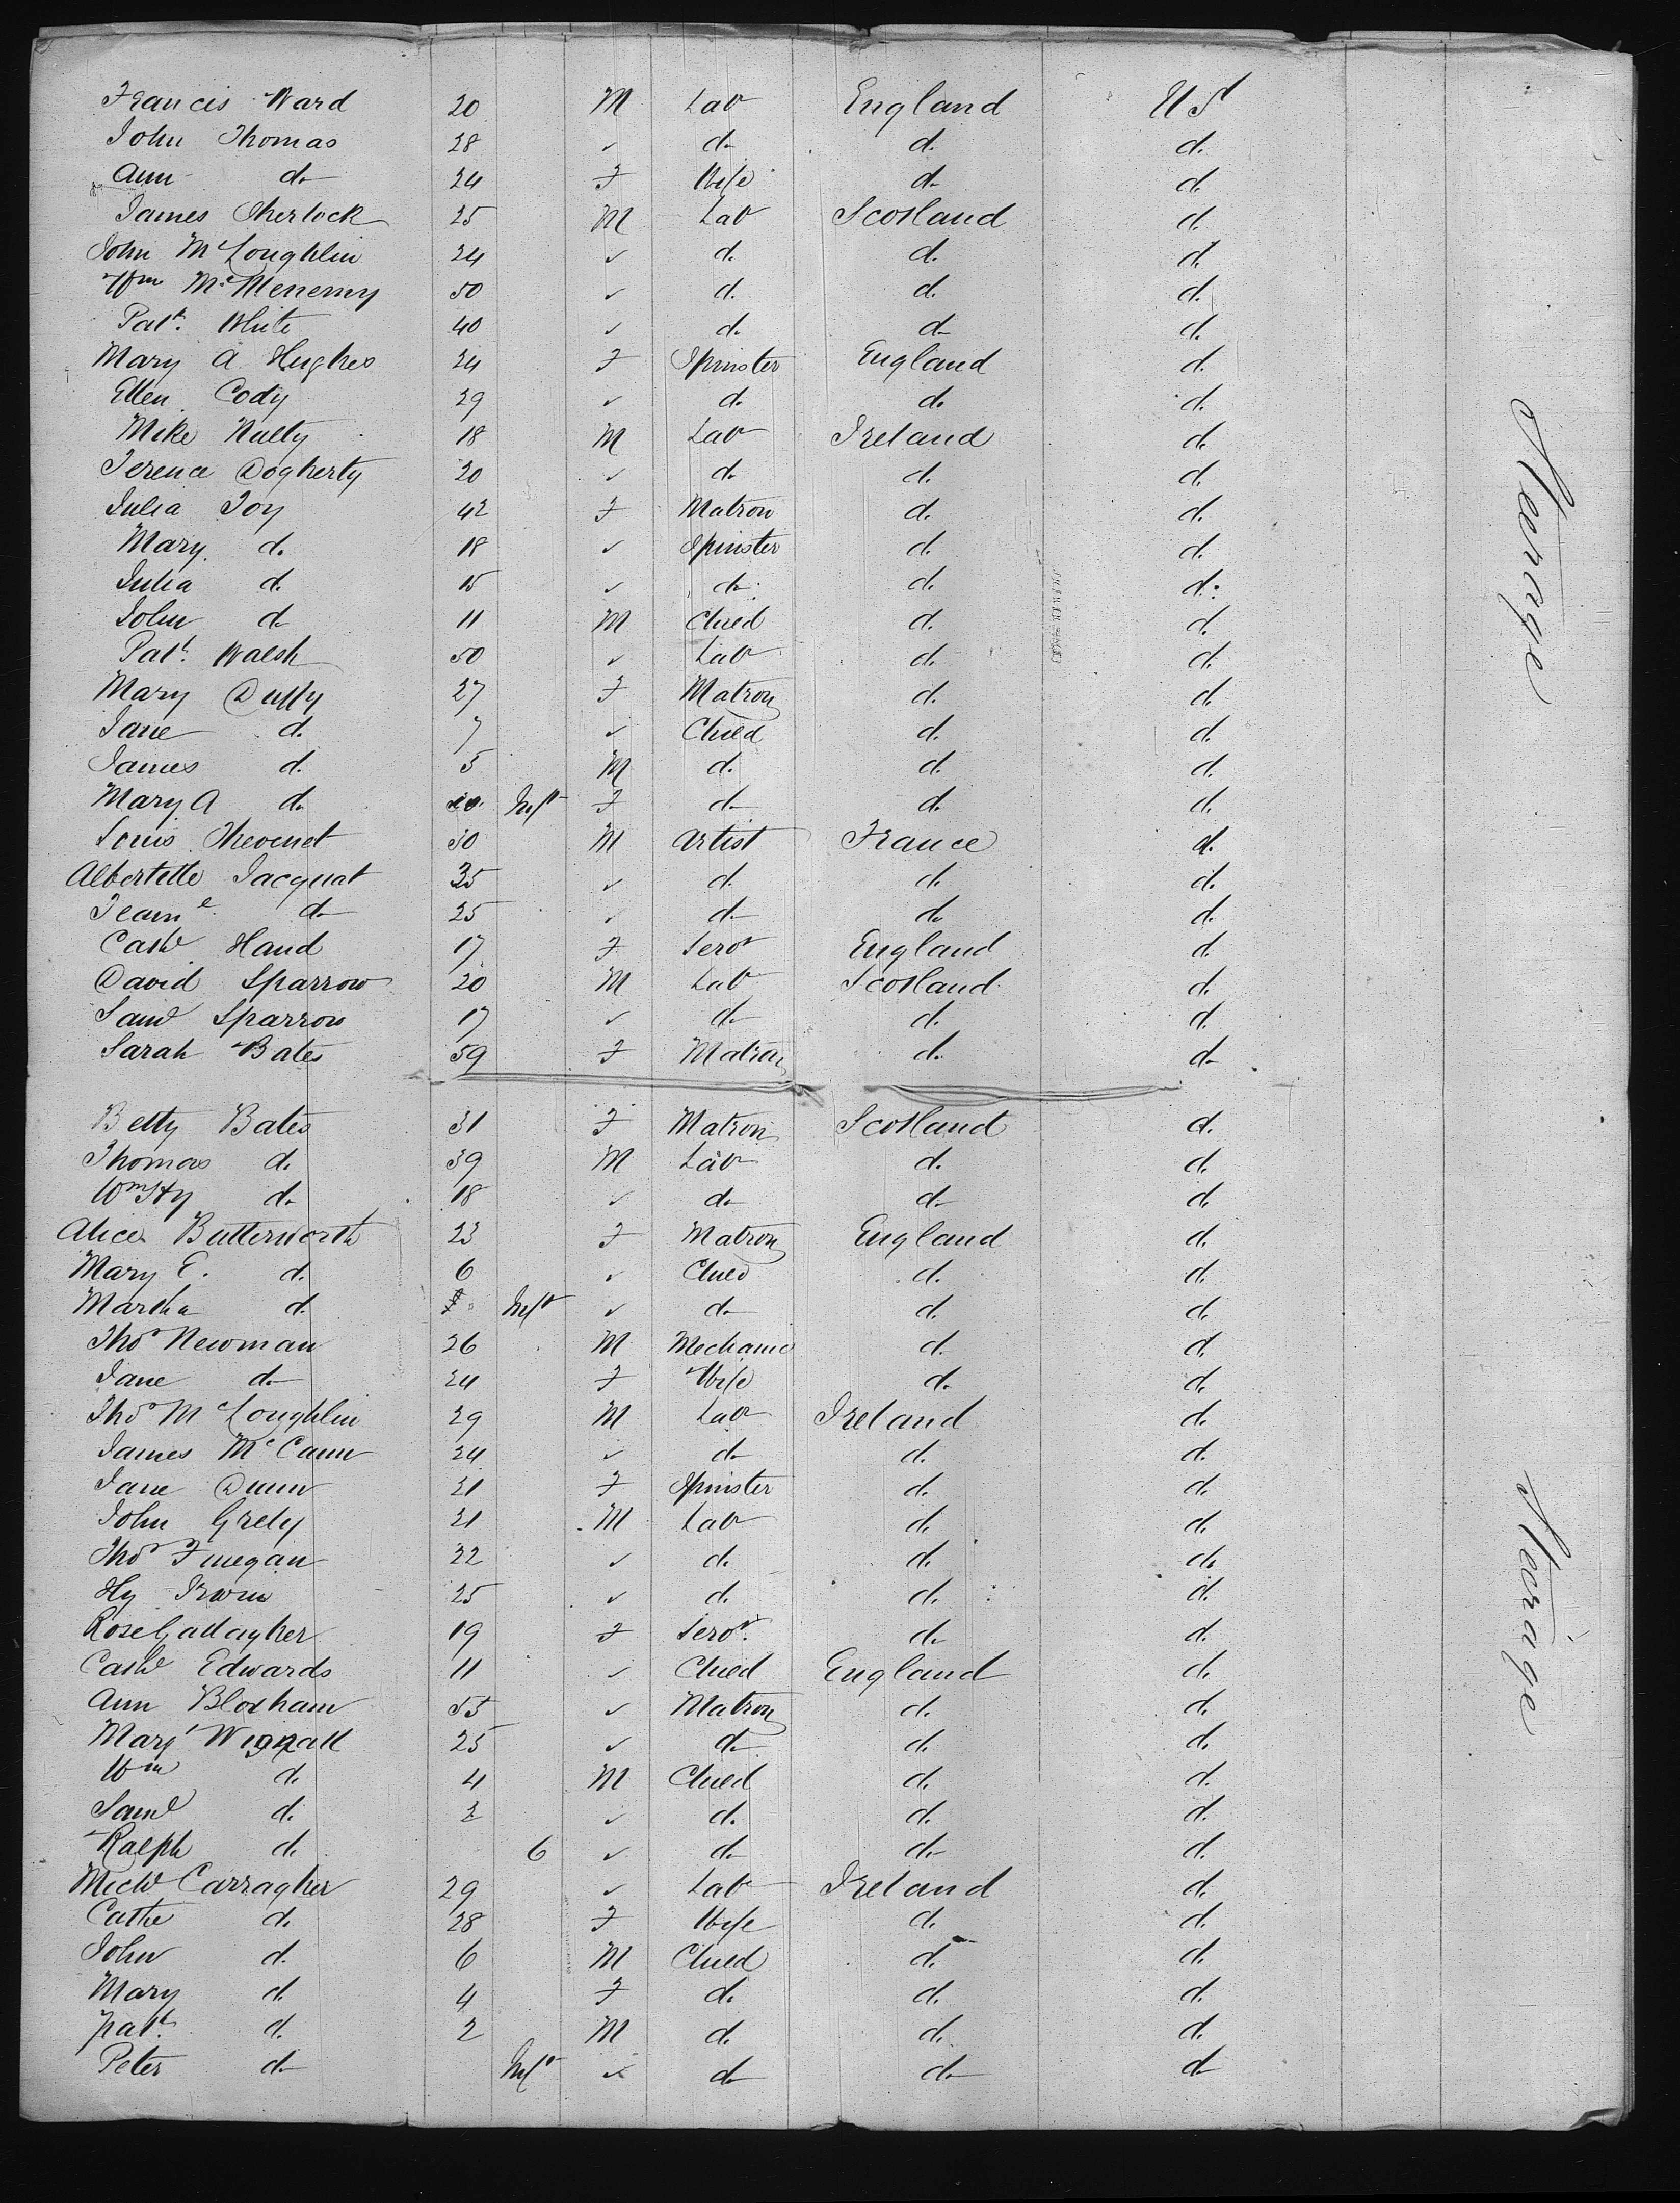 Francis Ward 20 M Lab England US
John Thomas 28 ✓ d. d. d.
Ann d. 24 F Wife d. d.
James Sherlock 25 M Lab Scotland d.
John McLoughlin 24 ✓ d. d. d.
Wm McMenemy 50 ✓ d. d. d.
Patk. White 40 ✓ d. d. d.
Mary A Hughes 24 F Spinster England d.
Ellen Cody 29 ✓ d. d. d.
Mike Nalty 18 M Lab Ireland d.
Terence Dogherty 20 ✓ d. d. d.
Julia Joy 42 F Matron d. d.
Mary d. 18 ✓ Spinster d. d.
Julia d. 15 ✓ d. d. d.
John d. 11 M Child d. d.
Patk. Walsh 50 ✓ Lab d. d.
Mary Duffy 27 F Matron d. d.
Jane d. 7 ✓ Child d. d.
James d. 5 M d. d. d.
Mary A d. Inft F d. d. d.
Louis Thevenet 30 M Artist France d.
Jacquat 35 ✓ d. d. d.
d. 25 ✓ d. d. d.
Cathe Hand 17 F Servt England d.
David Sparrow 20 M Lab Scotland d.
Saml Sparrow 17 ✓ d. d. d.
Sarah Bates 59 F Matron d. d.
Betty Bates 31 F Matron Scotland d.
Thomas d. 39 M Lab d. d.
Wm Hy d. 18 ✓ d. d. d.
Alice Butterworth 23 F Matron England d.
Mary E. d. 6 ✓ Child d. d.
Martha d. Inft ✓ d. d. d.
Thos Newman 26 M Mechanic d. d.
Jane d. 24 F Wife d. d.
Thos McLoughlin 29 M Lab Ireland d.
James McCann 24 ✓ d. d. d.
Jane Dunn 21 F Spinster d. d.
John Grely 21 M Lab d. d.
Thos Finegan 22 ✓ d. d. d.
Hy Irwin 25 ✓ d. d. d.
Rose Gallagher 19 F Servt. d. d.
Cathe Edwards 11 ✓ Child England d.
Ann Bloxham 55 ✓ Matron d. d.
Margt Wignall 25 ✓ d. d. d.
Wm d. 4 M Child d. d.
Saml d. 2 ✓ d. d. d.
Ralph d. 6 ✓ d. d. d.
Michl Carragher 29 ✓ Lab Ireland d.
Cathe d. 28 F Wife d. d.
John d. 6 M Child d. d.
Mary d. 4 F d. d. d.
Patk. d. 2 M d. d. d.
Peter d. Inft ✓ d. d. d.
Steerage
Steerage